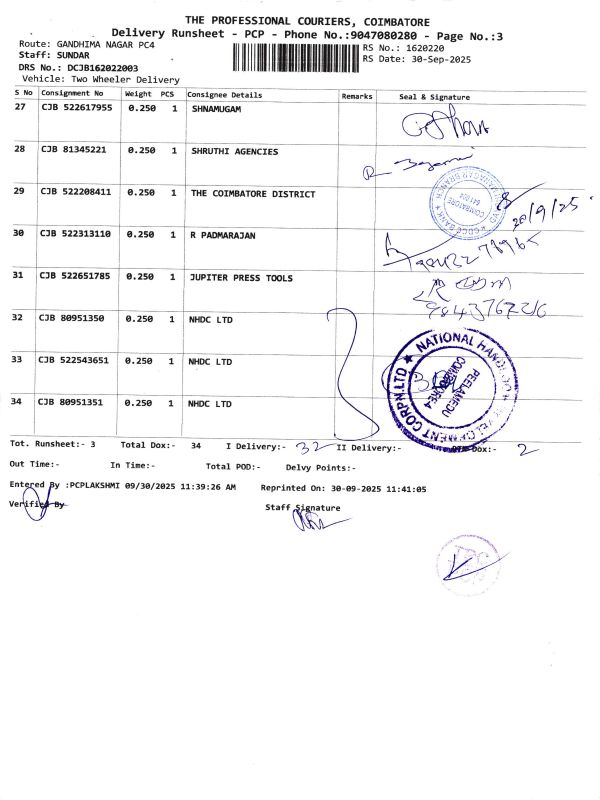 THE PROFESSIONAL COURIERS, COIMBATORE
Delivery Runsheet - PCP - Phone No.:9047080280 - Page No.:3
Route: GANDHIMA NAGAR PC4
RS No.: 1620220
Staff: SUNDAR
RS Date: 30-Sep-2025
DRS No.: DCJB162022003
Vehicle: Two Wheeler Delivery
S No Consignment No Weight PCS Consignee Details Remarks Seal & Signature
27 CJB 522617955 0.250 1 SHNAMUGAM
28 CJB 81345221 0.250 1 SHRUTHI AGENCIES
29 CJB 522208411 0.250 1 THE COIMBATORE DISTRICT
CDCC BANK COIMBATORE
30 CJB 522313110 0.250 1 R PADMARAJAN
31 CJB 522651785 0.250 1 JUPITER PRESS TOOLS
32 CJB 80951350 0.250 1 NHDC LTD
33 CJB 522543651 0.250 1 NHDC LTD
34 CJB 80951351 0.250 1 NHDC LTD
NATIONAL HANDLOOM DEVELOPMENT CORPN.LTD
PEELAMEDU
COIMBATORE 4
Tot. Runsheet:- 3 Total Dox:- 34 I Delivery:- 32 II Delivery:- Dox:- 2
Out Time:- In Time:- Total POD:- Delvy Points:-
Entered By :PCPLAKSHMI 09/30/2025 11:39:26 AM Reprinted On: 30-09-2025 11:41:05
Verified By Staff Signature